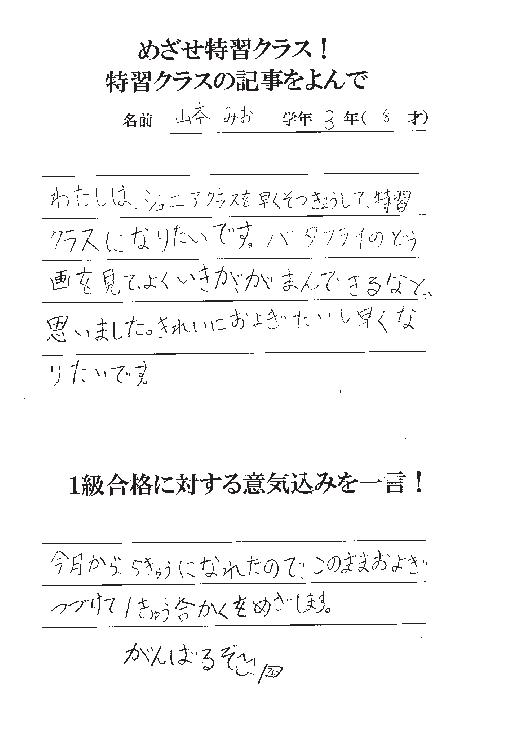 めざせ特習クラス！
特習クラスの記事をよんで
名前 山本 みお 学年 3 年( 8 才)
わたしは、ジュニアクラスを早くそつぎょうして、特習
クラスになりたいです。バタフライのどう
画を見て、よくいきがが まんできるなと、
思いました。きれいにおよぎたいし早くな
りたいです
1級合格に対する意気込みを一言！
今月から 5きゅうになれたので、このままおよぎ
つづけて1きゅう合かくをめざします。
がんばるぞ